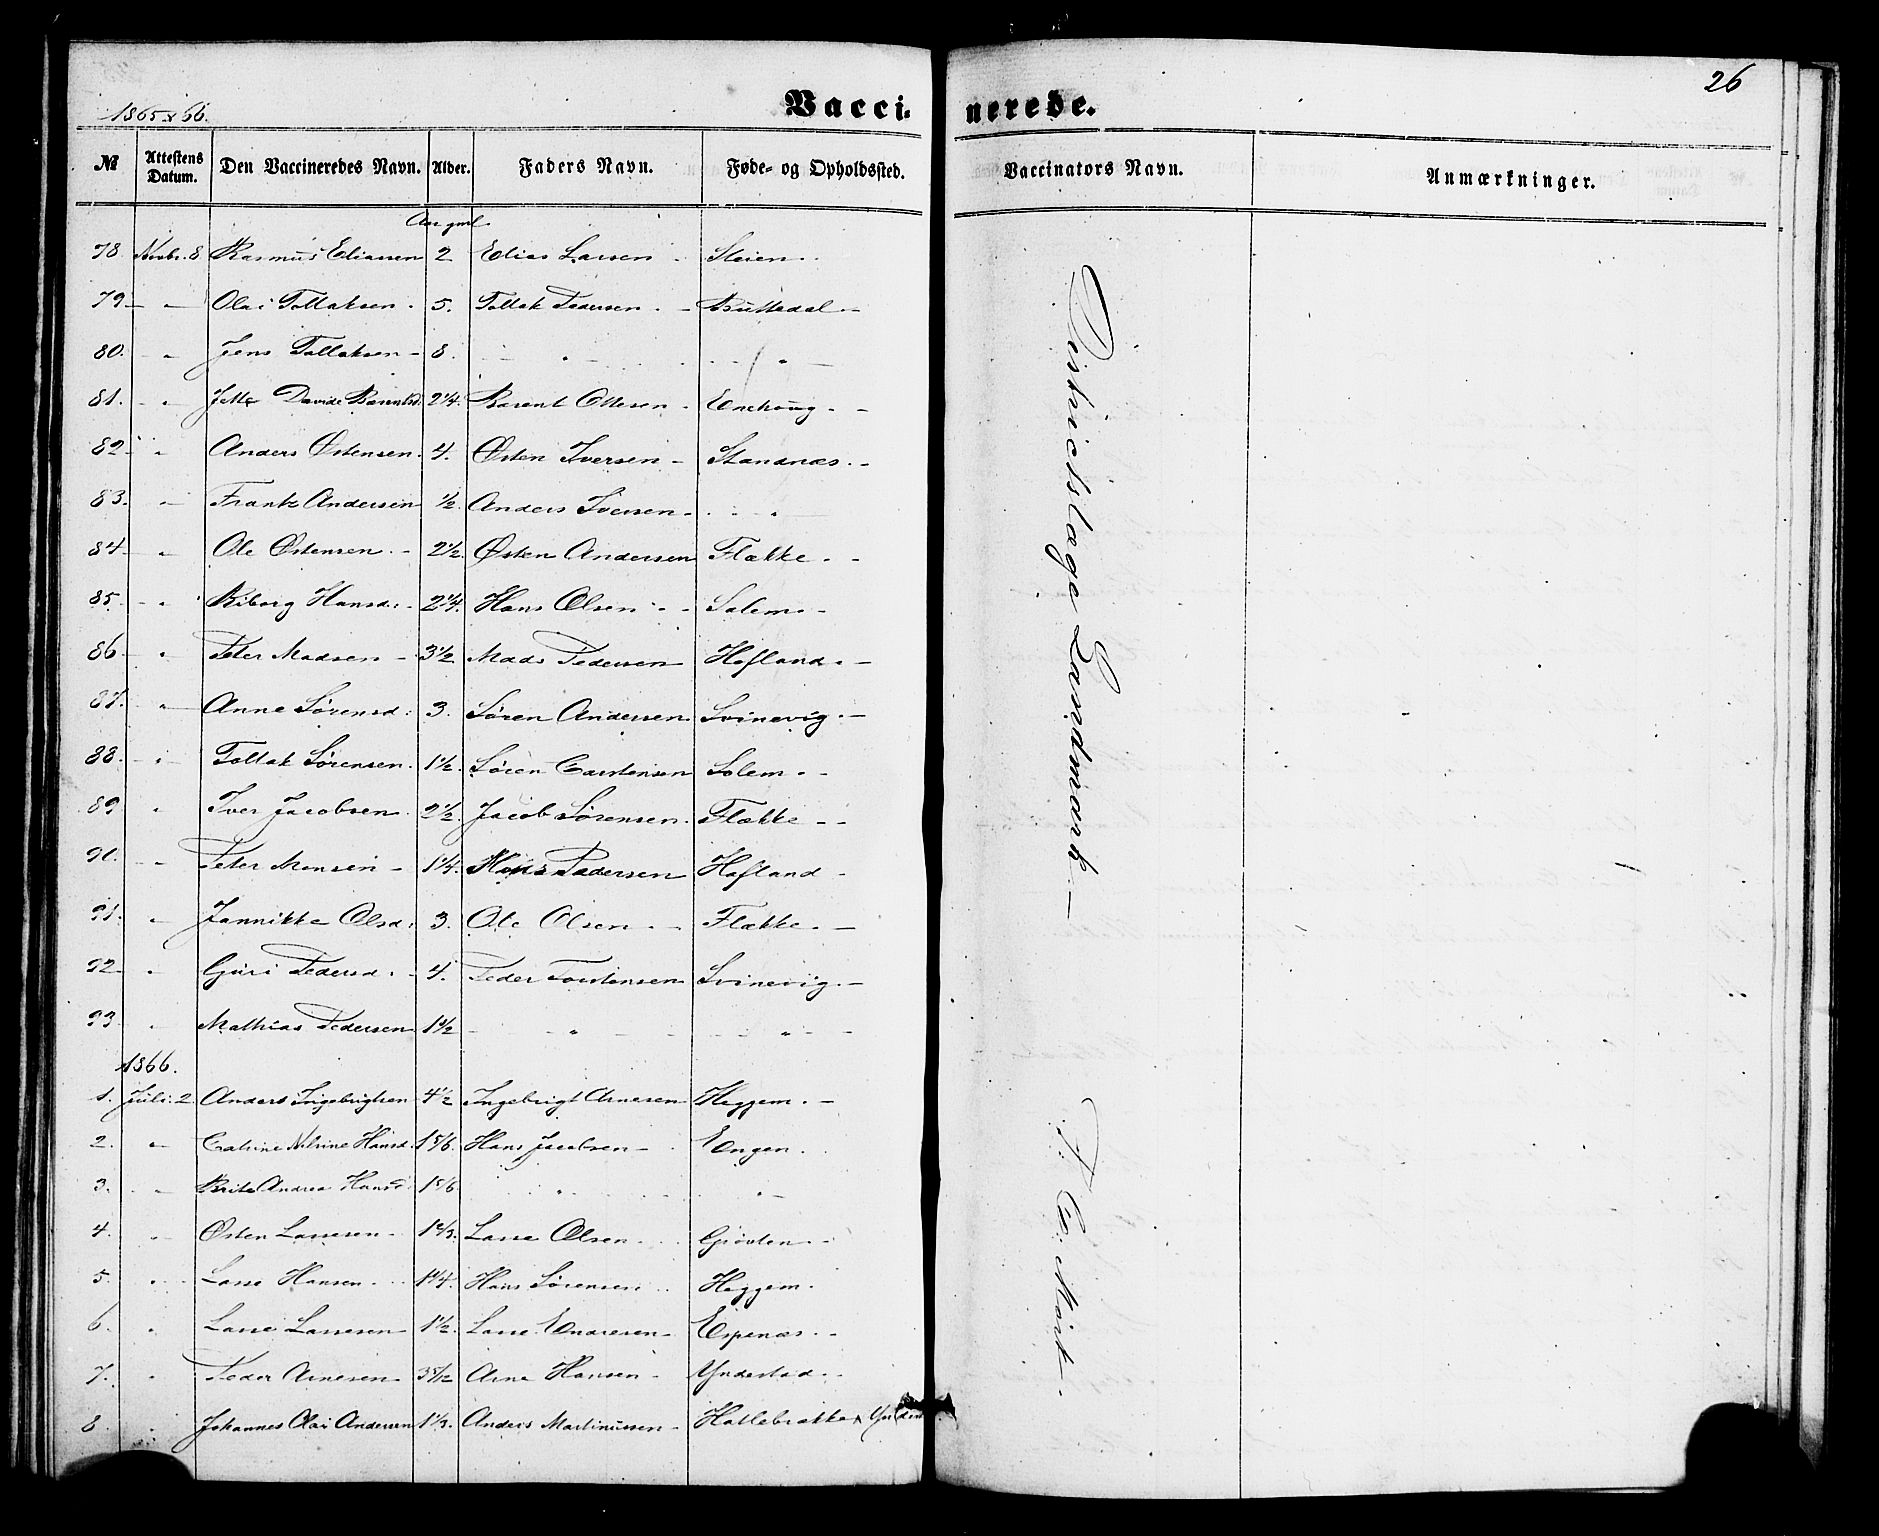 26
1865 & 66.
Vaccinerede.
№ Attestens Datum. Den Vaccineredes Navn. Alder. Faders Navn. Føde- og Opholdssted. Vaccinators Navn. Anmærkninger.
Aar gml.
78. Novbr. 8 Rasmus Eliassen 2 Elias Larsen - Steien -
79 - " Olai Tollaksen - 5. Tollak Pedersen - Buttedal -
80. - " Jens Tollaksen - 8. - " - - " -
81. - " Davide 2 1/4. Barent Ottesen - Enehoug -
82 - " Anders Østensen. 4. Østen Iversen - Standnæs -
83. " Frantz Andersen 1/2 Anders Iversen - - " -
84 - " Ole Østensen - 2 1/2 Østen Andersen Flække -
85 - " Hansd. - 2 1/4. Hans Olsen - Solem -
86 - " Peter Madsen - 3 1/2 Mads Pedersen Hofland -
87. " Anne Sørensd. 3. Søren Andersen Svinevig -
88. - " Tollak Sørensen. 1 1/2. Søren Carstensen Solem -
89 " Iver Jacobsen 2 1/2. Jacob Sørensen. Flække -
90. - " Peter Monsen - 1 1/4. Mons Pedersen Hofland -
91. " Jannikke Olsd. 3. Ole Olsen - Flække -
92 - " Guri Pedersd. - 4. Peder Torstensen Svinevig -
93 " Mathias Pedersen 1 1/2 - " - - " -
1866.
1. Juli 2 Anders Ingebrigtsen 4 1/2 Ingebrigt Arnesen Heggem -
2. " Catrine Nilsine Hansd. 1 5/6. Hans Jacobsen - Engen.
3. " Brite Andrea Hansd. 1 5/6 " " -
4. " Østen Lassesen - 1 2/3. Lasse Olsen - Grøvlen -
5. " Lasse Hansen - 1 1/4. Hans Sørensen Heggem -
6. " Lasse Lassesen 1 1/2. Lasse Endresen - Espenæs -
7. " Peder Arnesen 3 5/12 Arne Hansen - Yndestad -
8 " Johannes Olai Andersen 1 1/3. Anders Martinussen - Hatlebrække
Districtslæge Landmark -
P. C. Mørk.